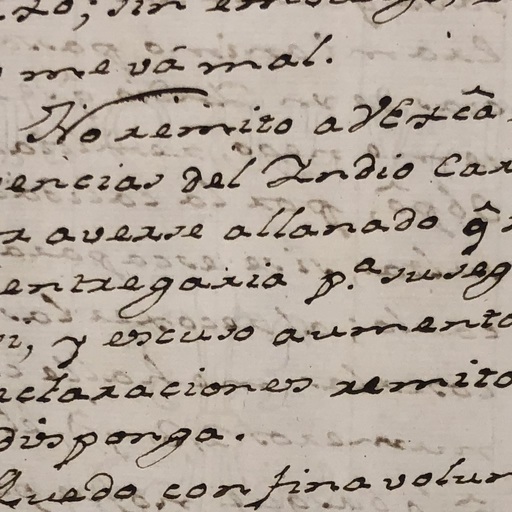 sin embargo,
me vá mal.
No remito a VExcâ
encias del Indio Cax
averse allanado q̂
entregaria p.ª su seg
y escuso aumento
claraciones remito
disponga.
Quedo con fina volun